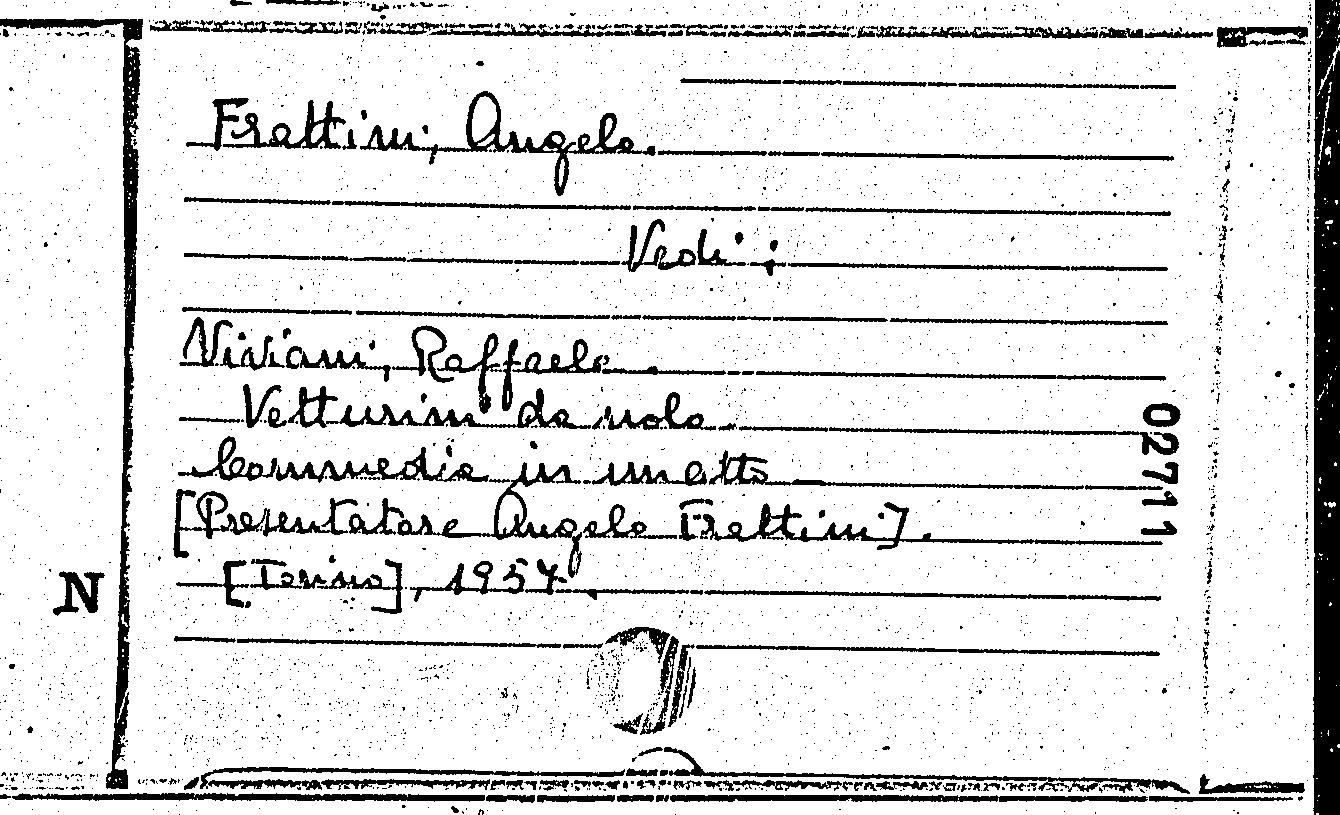 Frattini, Angelo.
Vedi:
Viviani, Raffaele.
Vetturini da nolo.
Commedia in un atto
[Presentatore Angelo Frattini].
[Torino], 1957.
02711
N